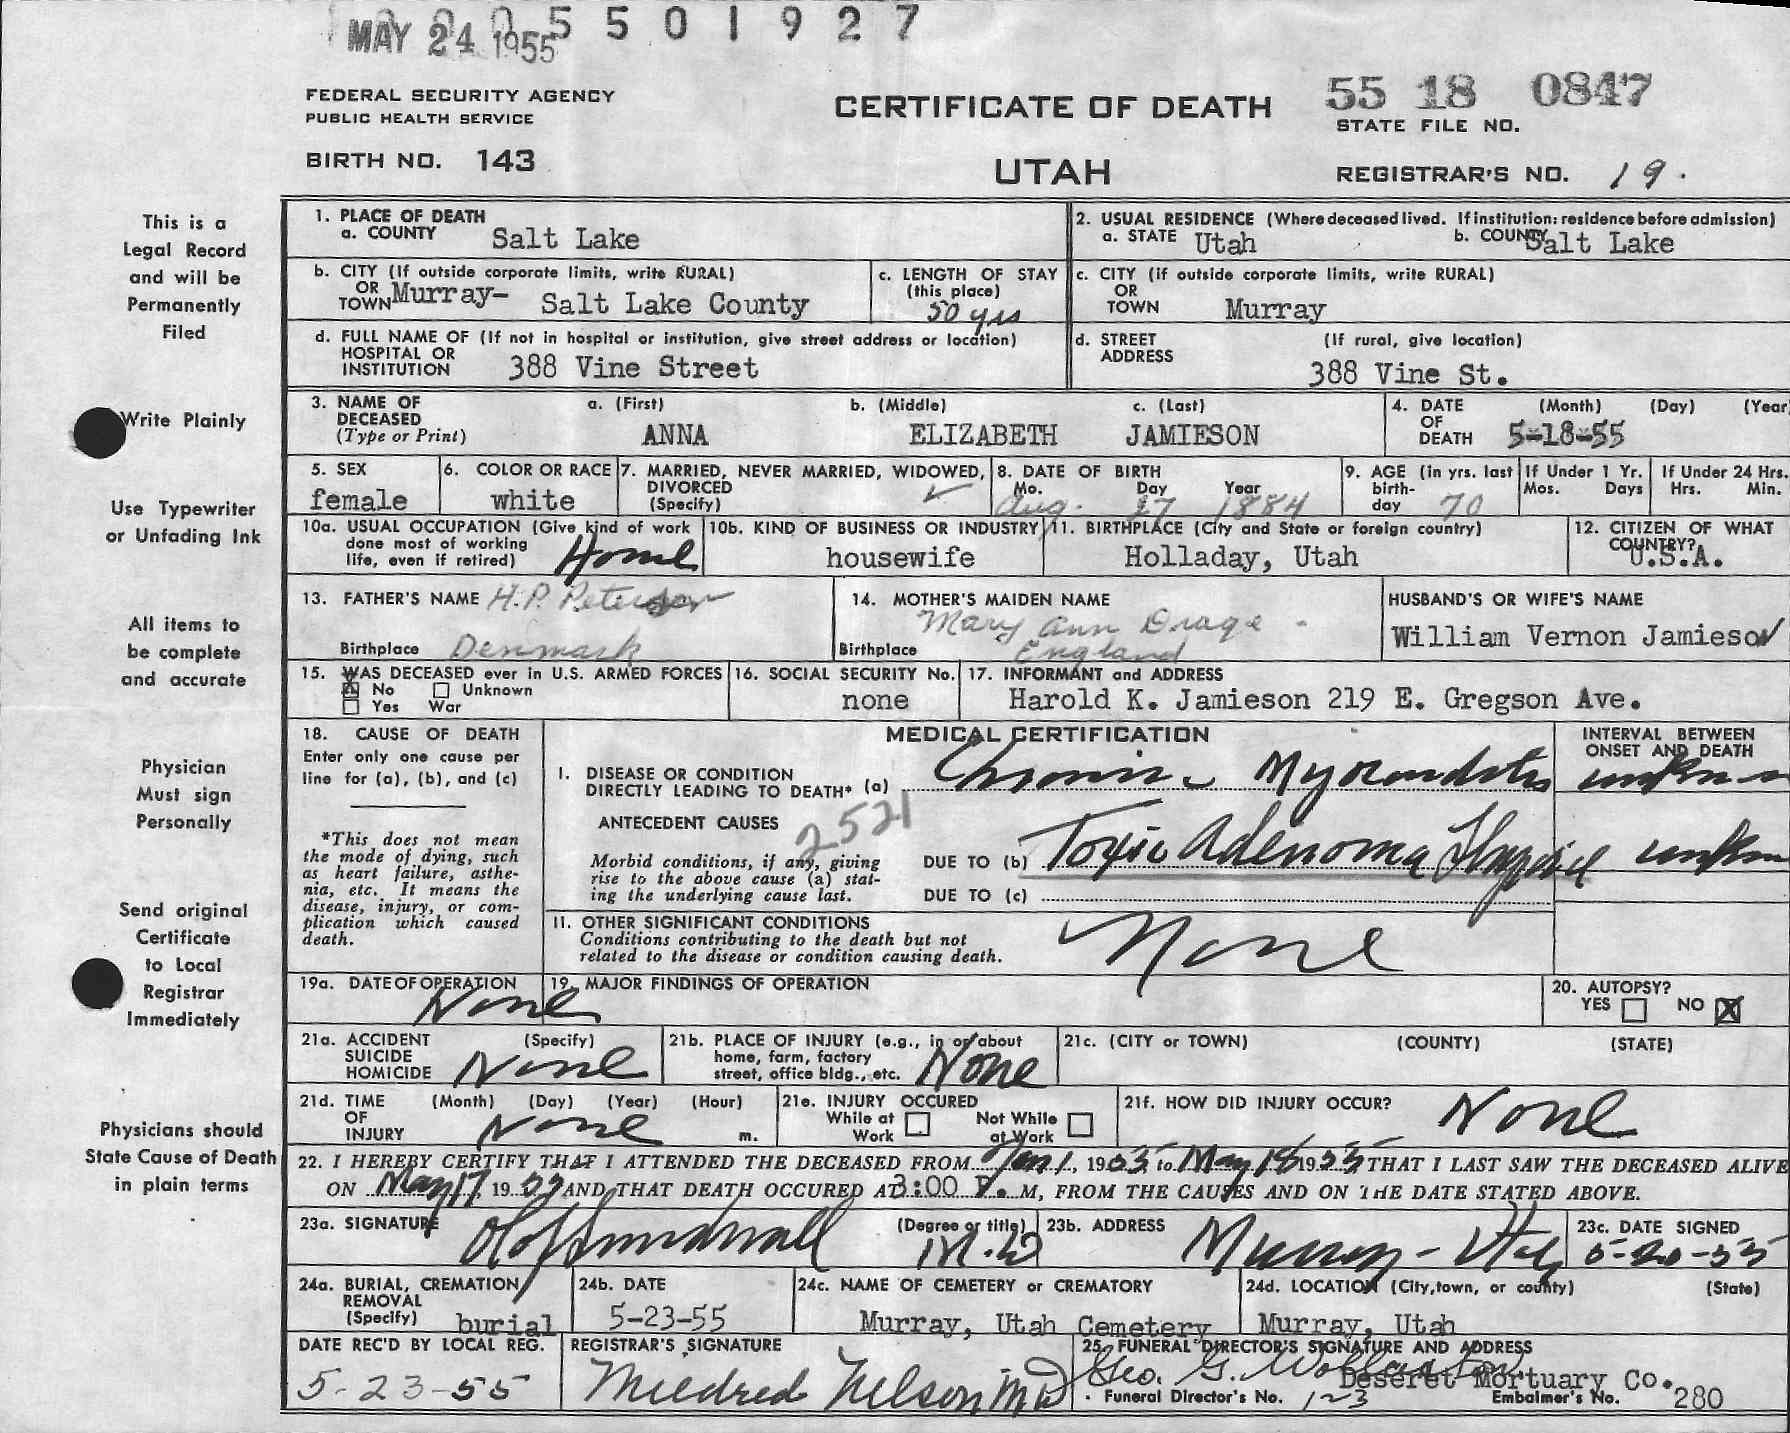 MAY 24 1955 5 5 0 1 9 2 7
FEDERAL SECURITY AGENCY
PUBLIC HEALTH SERVICE
BIRTH NO. 143
CERTIFICATE OF DEATH
UTAH
55 18 0847
STATE FILE NO.
REGISTRAR'S NO. 19.
This is a
Legal Record
and will be
Permanently
Filed
Write Plainly
Use Typewriter
or Unfading Ink
All items to
be complete
and accurate
Physician
Must sign
Personally
Send original
Certificate
to Local
Registrar
Immediately
Physicians should
State Cause of Death
in plain terms
1. PLACE OF DEATH
a. COUNTY Salt Lake
2. USUAL RESIDENCE (Where deceased lived. If institution: residence before admission)
a. STATE Utah b. COUNTY Salt Lake
b. CITY (If outside corporate limits, write RURAL)
OR
TOWN Murray- Salt Lake County
c. LENGTH OF STAY
(this place)
50 yrs
c. CITY (if outside corporate limits, write RURAL)
OR
TOWN Murray
d. FULL NAME OF (If not in hospital or institution, give street address or location)
HOSPITAL OR
INSTITUTION 388 Vine Street
d. STREET (If rural, give location)
ADDRESS
388 Vine St.
3. NAME OF
DECEASED
(Type or Print)
a. (First) b. (Middle) c. (Last)
ANNA ELIZABETH JAMIESON
4. DATE (Month) (Day) (Year
OF
DEATH 5-18-55
5. SEX
female
6. COLOR OR RACE
white
7. MARRIED, NEVER MARRIED, WIDOWED,
DIVORCED
(Specify)
8. DATE OF BIRTH
Mo. Day Year
Aug. 27 1884
9. AGE (in yrs. last
birth-
day 70
If Under 1 Yr.
Mos. Days
If Under 24 Hrs.
Hrs. Min.
10a. USUAL OCCUPATION (Give kind of work
done most of working
life, even if retired) Home
10b. KIND OF BUSINESS OR INDUSTRY
housewife
11. BIRTHPLACE (City and State or foreign country)
Holladay, Utah
12. CITIZEN OF WHAT
COUNTRY?
U.S.A.
13. FATHER'S NAME H.P. Peterson
Birthplace Denmark
14. MOTHER'S MAIDEN NAME
Mary Ann Drage
Birthplace England
HUSBAND'S OR WIFE'S NAME
William Vernon Jamieson
15. WAS DECEASED ever in U.S. ARMED FORCES
No Unknown
Yes War
16. SOCIAL SECURITY No.
none
17. INFORMANT and ADDRESS
Harold K. Jamieson 219 E. Gregson Ave.
18. CAUSE OF DEATH
Enter only one cause per
line for (a), (b), and (c)
*This does not mean
the mode of dying, such
as heart failure, asthe-
nia, etc. It means the
disease, injury, or com-
plication which caused
death.
MEDICAL CERTIFICATION
INTERVAL BETWEEN
ONSET AND DEATH
I. DISEASE OR CONDITION
DIRECTLY LEADING TO DEATH* (a) Chronic Myocarditis
ANTECEDENT CAUSES
2521
Morbid conditions, if any, giving
rise to the above cause (a) stat-
ing the underlying cause last.
DUE TO (b) Toxic Adenoma Thyroid
DUE TO (c)
II. OTHER SIGNIFICANT CONDITIONS
Conditions contributing to the death but not
related to the disease or condition causing death.
None
19a. DATE OF OPERATION
None
19. MAJOR FINDINGS OF OPERATION
20. AUTOPSY?
YES NO X
21a. ACCIDENT (Specify)
SUICIDE
HOMICIDE None
21b. PLACE OF INJURY (e.g., in or about
home, farm, factory
street, office bldg., etc. None
21c. (CITY or TOWN) (COUNTY) (STATE)
21d. TIME (Month) (Day) (Year) (Hour)
OF
INJURY None m.
21e. INJURY OCCURED
While at Not While
Work at Work
21f. HOW DID INJURY OCCUR? None
22. I HEREBY CERTIFY THAT I ATTENDED THE DECEASED FROM Jan 1, 1955 to May 18 1955 THAT I LAST SAW THE DECEASED ALIVE
ON May 17, 1955 AND THAT DEATH OCCURED AT 3:00 P. M, FROM THE CAUSES AND ON THE DATE STATED ABOVE.
23a. SIGNATURE (Degree or title)
M.D
23b. ADDRESS
Murray - Utah
23c. DATE SIGNED
5-20-55
24a. BURIAL, CREMATION
REMOVAL
(Specify) burial
24b. DATE
5-23-55
24c. NAME OF CEMETERY or CREMATORY
Murray, Utah Cemetery
24d. LOCATION (City, town, or county) (State)
Murray, Utah
DATE REC'D BY LOCAL REG.
5-23-55
REGISTRAR'S SIGNATURE
Mildred Nelson MD
25. FUNERAL DIRECTOR'S SIGNATURE AND ADDRESS
Geo. G.
Deseret Mortuary Co.
Funeral Director's No. 123 Embalmer's No. 280